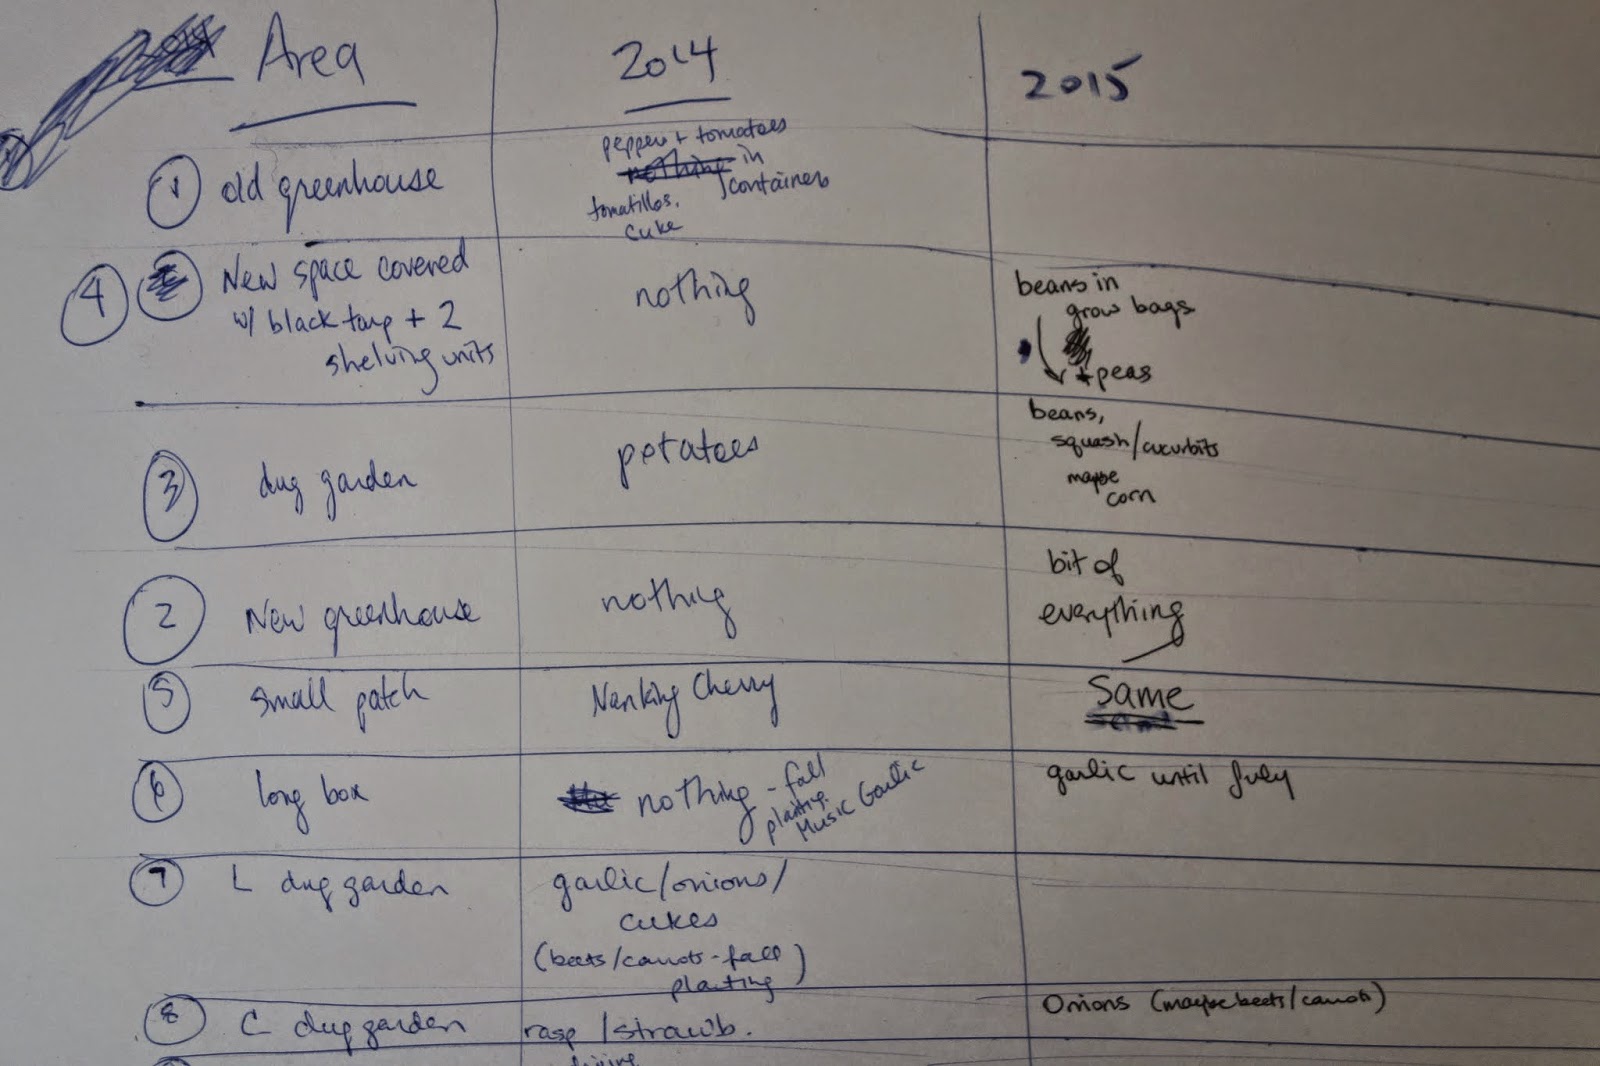 Area 2014 2015
① old greenhouse
peppers + tomatoes
nothing in
containers
tomatillos,
cuke
④ New space covered
w/ black tarp + 2
shelving units
nothing
beans in
grow bags
+ peas
③ dug garden
potatoes
beans,
squash/cucurbits
maybe
corn
② New greenhouse
nothing
bit of
everything
⑤ small patch
Nanking Cherry
Same
⑥ long box
nothing - fall
planting.
Music Garlic
garlic until July
⑦ L dug garden
garlic/onions/
cukes
(beets/carrots - fall
planting)
⑧ C dug garden
rasp/strawb.
Onions (maybe beets/carrots)